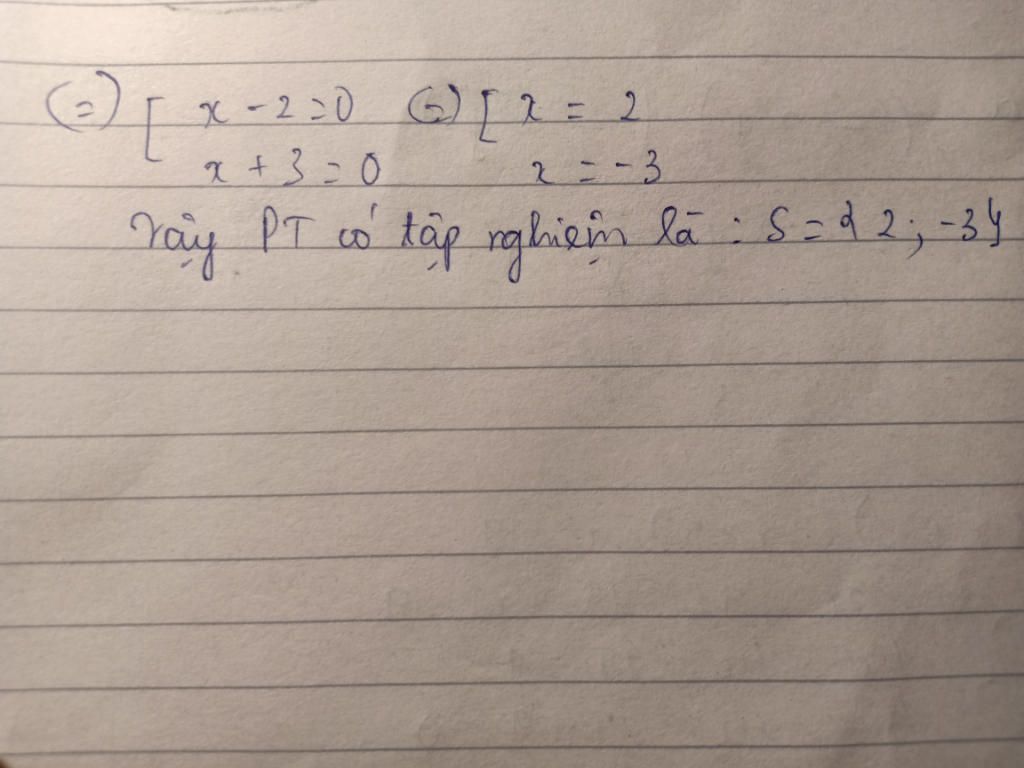 (=) [ x - 2 = 0 (=) [ x = 2
x + 3 = 0 x = -3
Vậy PT có tập nghiệm là : S = { 2 ; -3 }